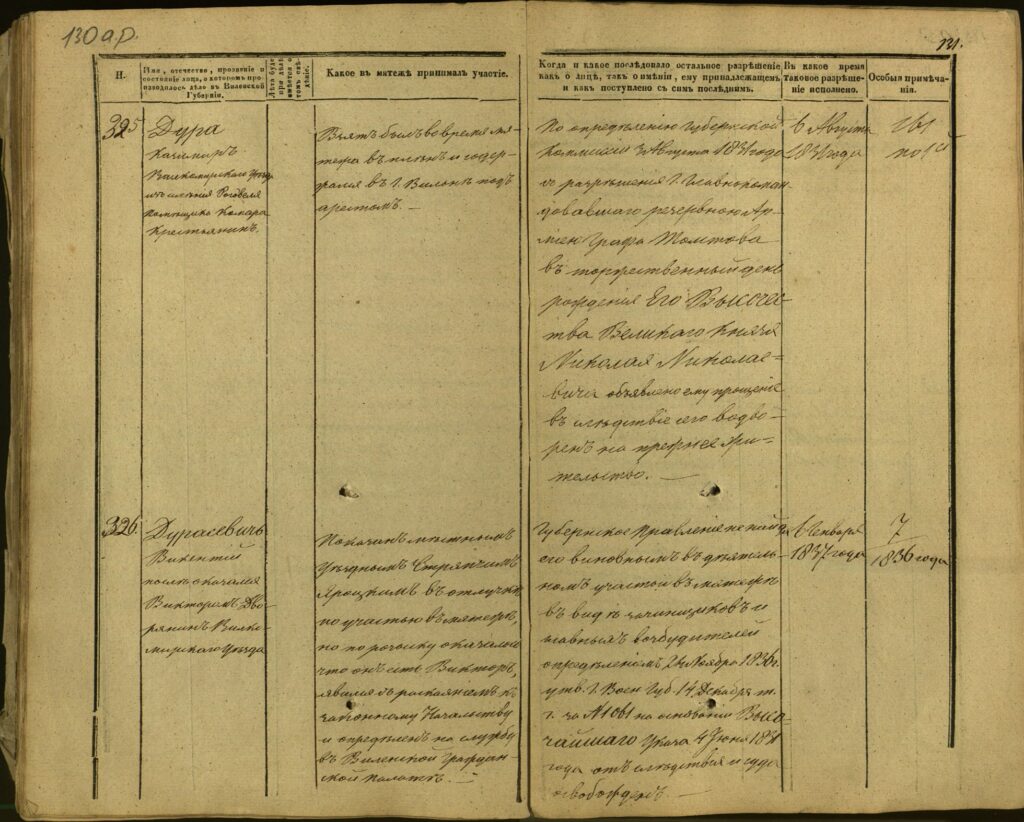 130 а.р.
131.
Н.
Имя, отечество, прозвение и
состояние лица, о котором про-
изводилось дѣло въ Виленской
Губерніи.
Какое въ мятежѣ принималъ участіе.
Когда и какое послѣдовало остальное разрѣшеніе
какъ о лицѣ, такъ о имѣніи, ему принадлежащемъ
и какъ поступлено съ симъ послѣднимъ.
Въ какое время
таковое разрѣше-
ніе исполнено.
Особыя примѣча-
нія.
325
Дура
Казимиръ
Вилкомирскаго Уѣзда
изъ имѣнія Роговеля
помѣщика Комара
Крестьянинъ.
Взятъ былъ во время мя-
тежа въ плѣнъ и содер-
жался въ Г. Вильнѣ подъ
арестомъ. —
По опредѣленію Губернской
Коммисіи 3 Августа 1831 года
съ разрѣшенія Г. Главнокоман-
довавшаго резервною Ар-
міею Графа Толстова
въ торжественный день
рожденія Его Высочес-
тва Великаго Князя
Николая Николае-
вича объявлено ему прощеніе
въ слѣдствіе его водво-
ренъ на прежнее жи-
тельство. —
6 Августа
1831 года
326.
Дурасевичъ
Викентій
послѣ оказался
Викторомъ Дво-
рянинъ Вилко-
мирскаго Уѣзда
Показанъ мѣстнымъ
Уѣзднымъ Стряпчимъ
Яроцкимъ въ отлучкѣ
по участью въ мятежѣ,
но по розыску оказалось
что онъ есть Викторъ,
явился съ раскаяніемъ къ
законному Начальству
и опредѣленъ на службу
въ Виленской Граждан-
ской палатѣ. —
Губернское Правленіе не найдя
его виновнымъ въ дѣятель-
номъ участіи въ мятежѣ
въ видѣ зачинщиковъ и
главныхъ возбудителей
опредѣленіемъ 24 Ноября 1836 г.
утв. Г. Воен. Губ. 14 Декабря т.
г. за № 1081 на основаніи Высо-
чайшаго Указа 4 Іюня 1831
года отъ слѣдствія и суда
освобожденъ. —
6 Генваря
1837 года
7
1836 года